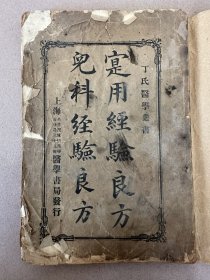 丁氏醫學叢書
寔用經驗良方
兒科経驗良方
上海
醫學書局發行